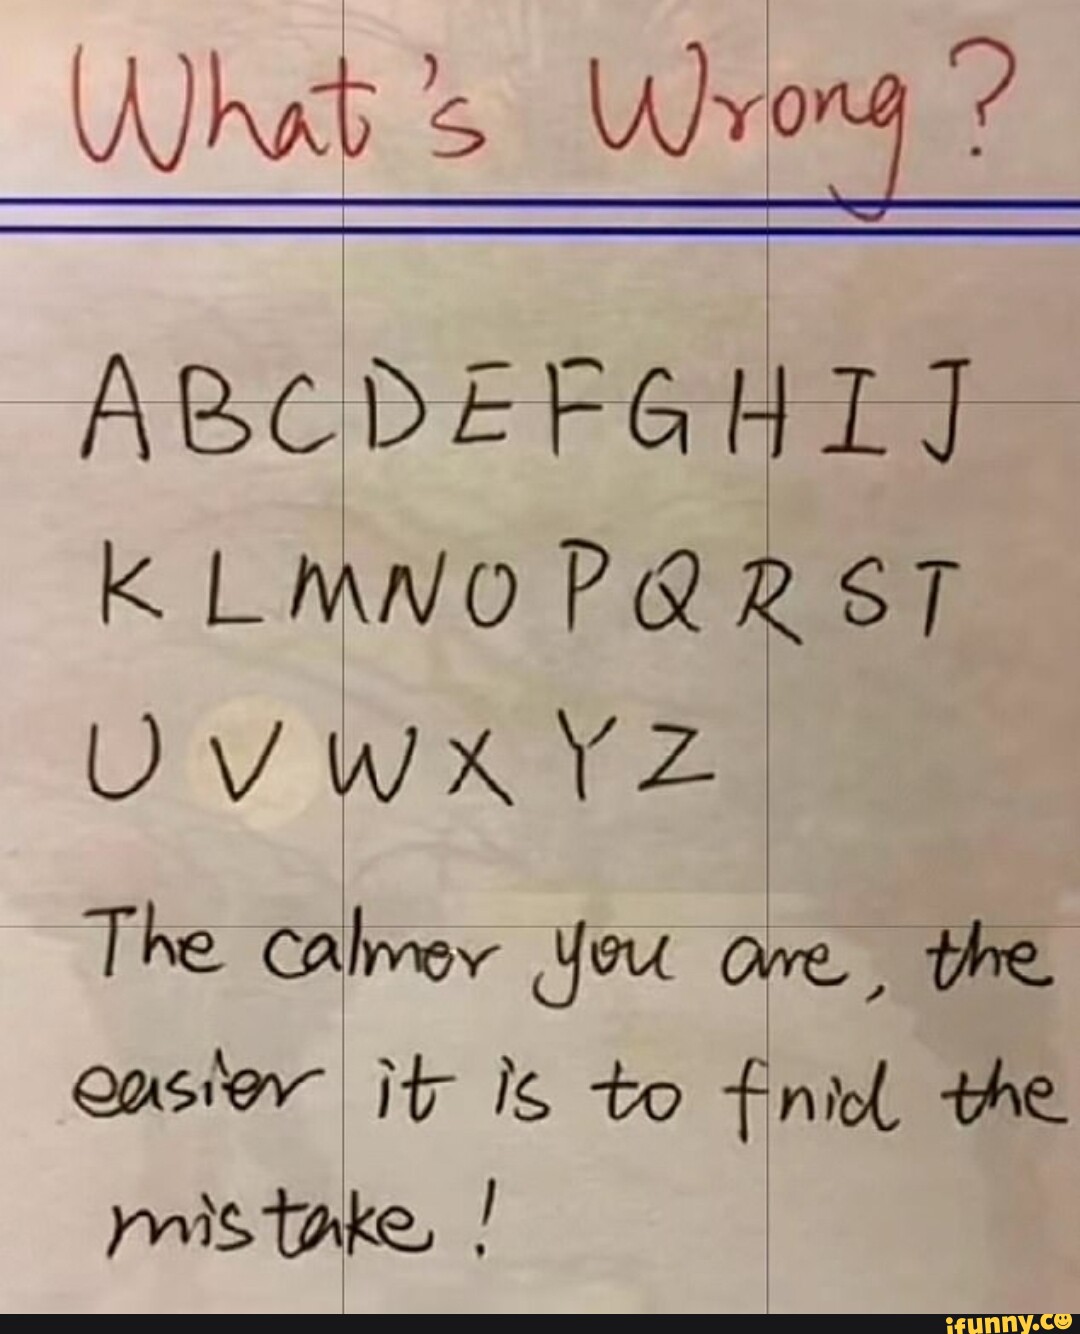 What's Wrong?
A B C D E F G H I J
K L M N O P Q R S T
U V W X Y Z
The calmer you are, the
easier it is to fnid the
mistake!
ifunny.co